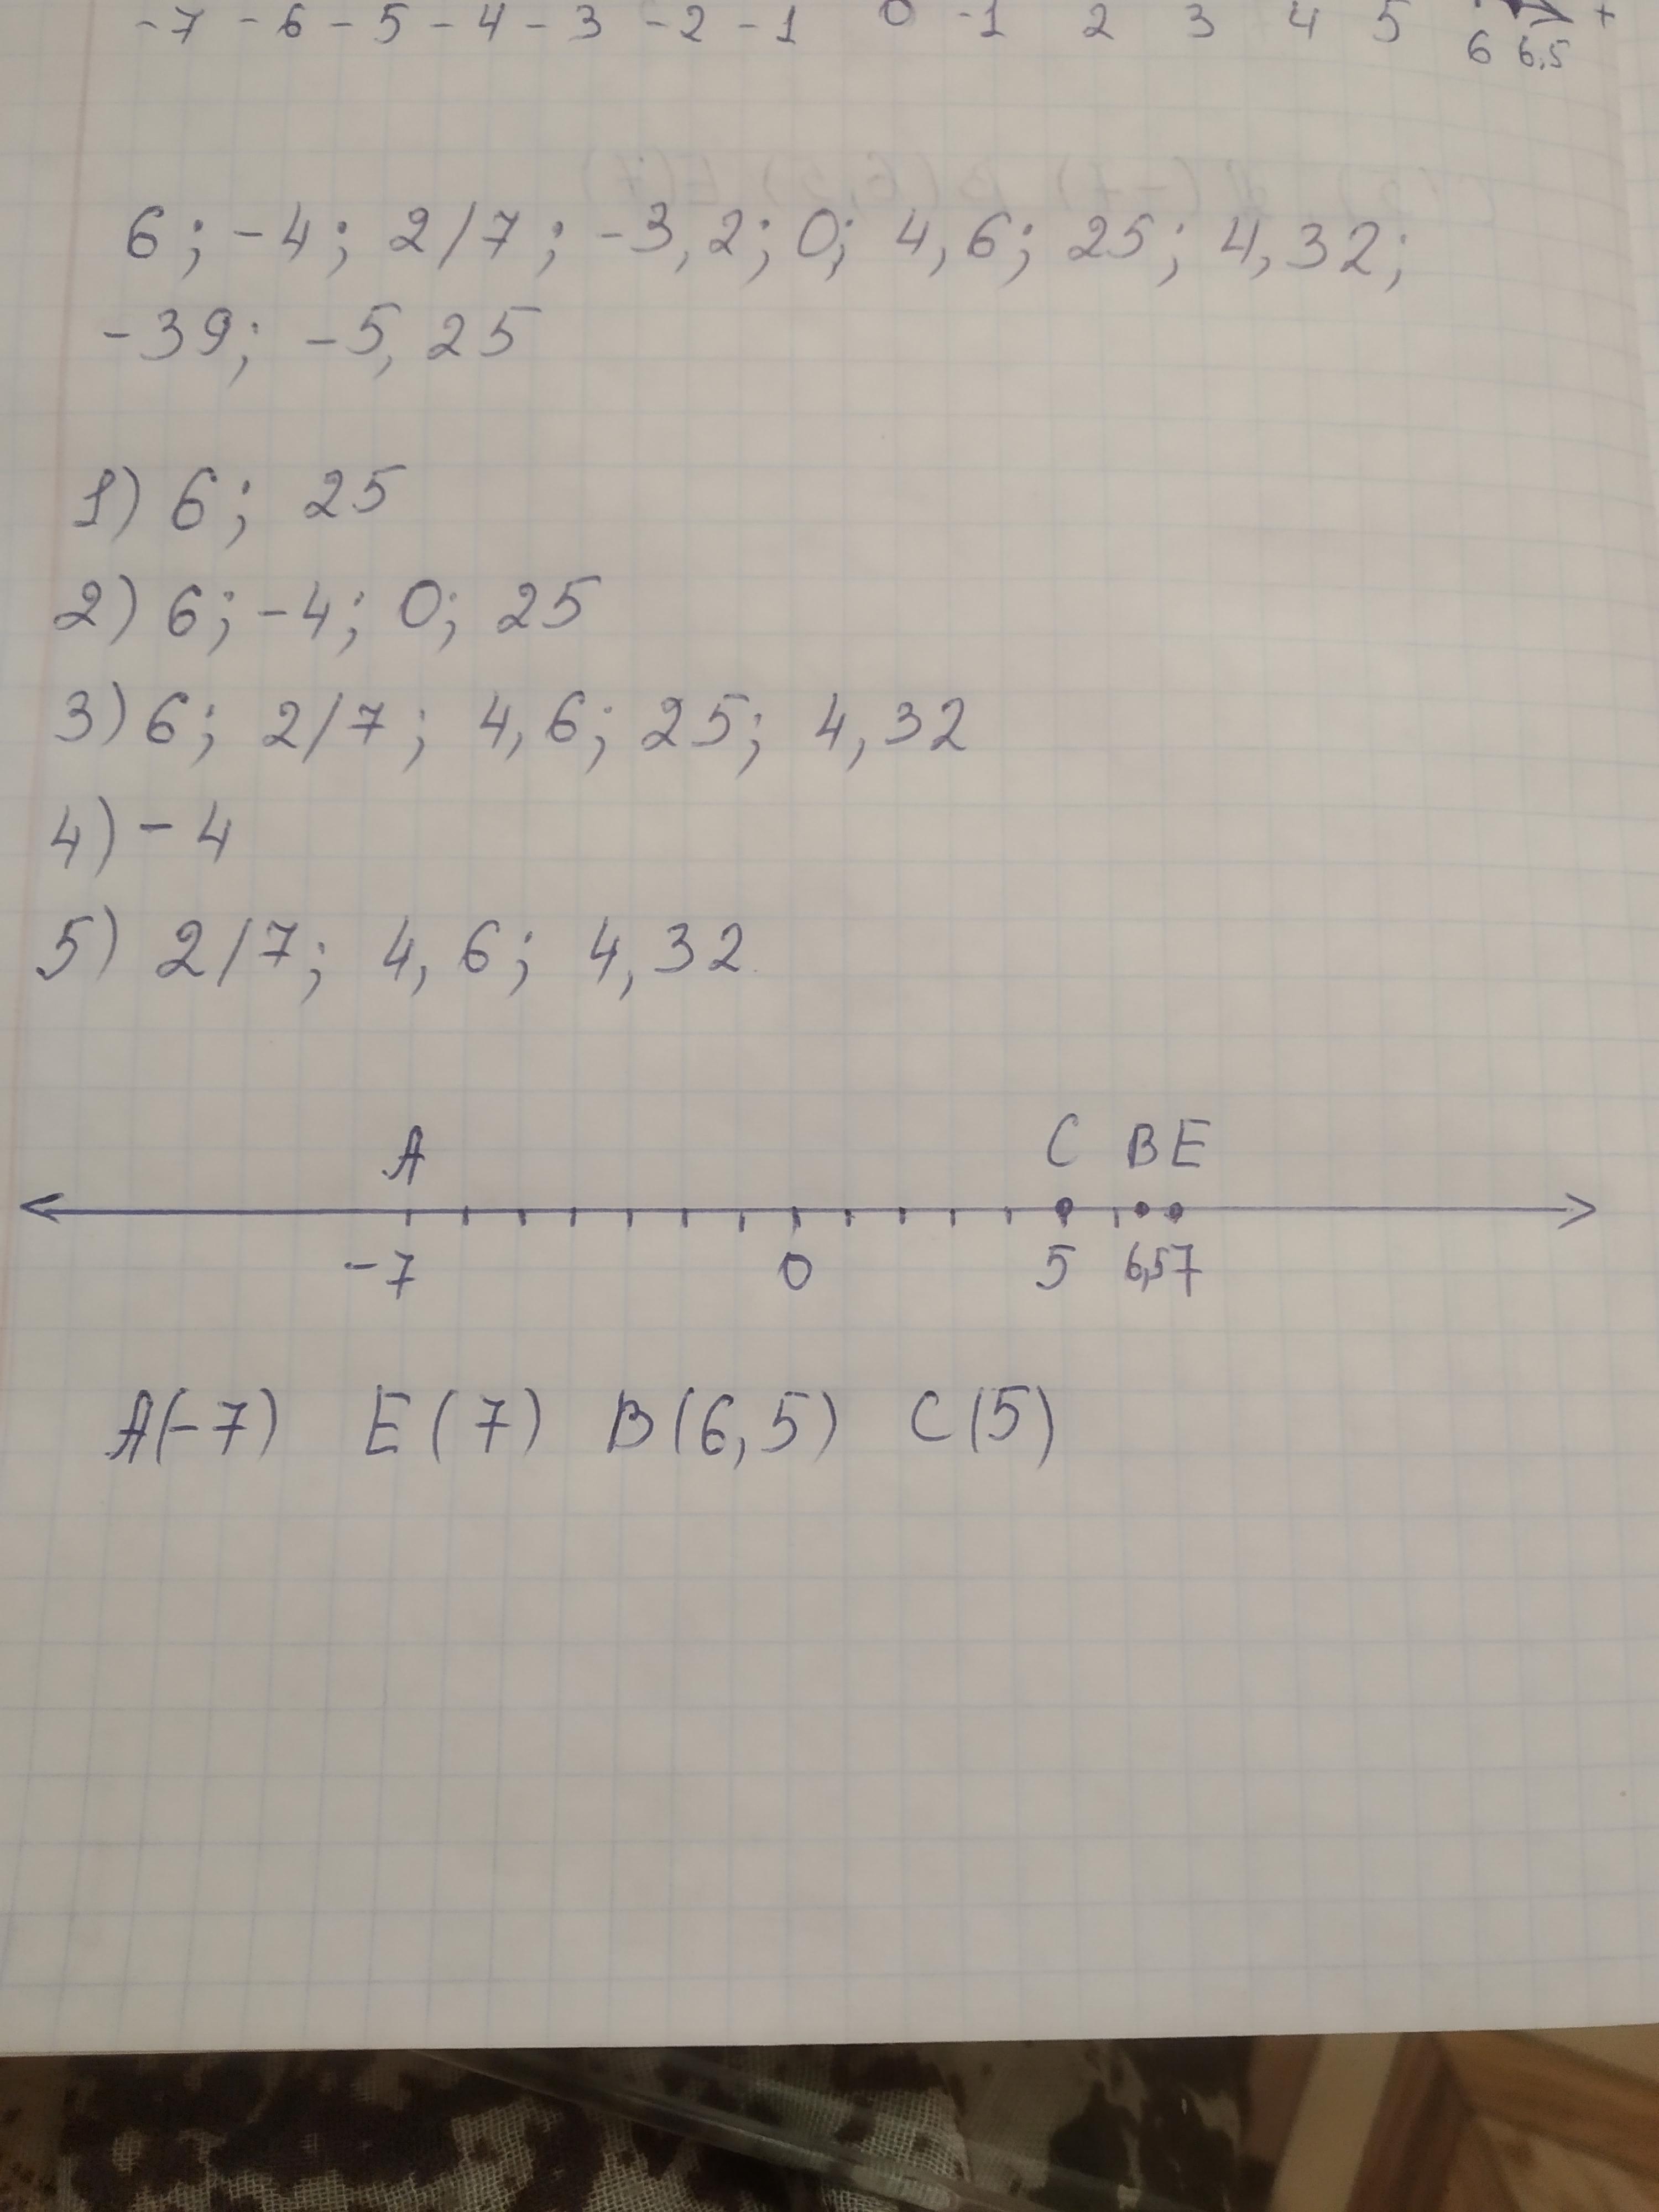 -7 -6 -5 -4 -3 -2 -1 0 -1 2 3 4 5 +
6 6,5
6; -4; 2/7; -3,2; 0; 4,6; 25; 4,32;
-39; -5,25
1) 6; 25
2) 6; -4; 0; 25
3) 6; 2/7; 4,6; 25; 4,32
4) -4
5) 2/7; 4,6; 4,32
A C B E
-7 0 5 6,5 7
A(-7) E(7) B(6,5) C(5)